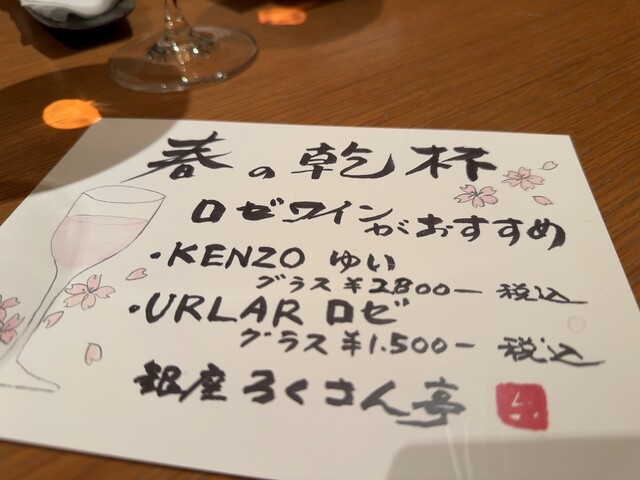 春の乾杯
ロゼワインがおすすめ
・KENZO ゆい
グラス ¥2800- 税込
・URLAR ロゼ
グラス ¥1.500- 税込
銀座ろくさん亭